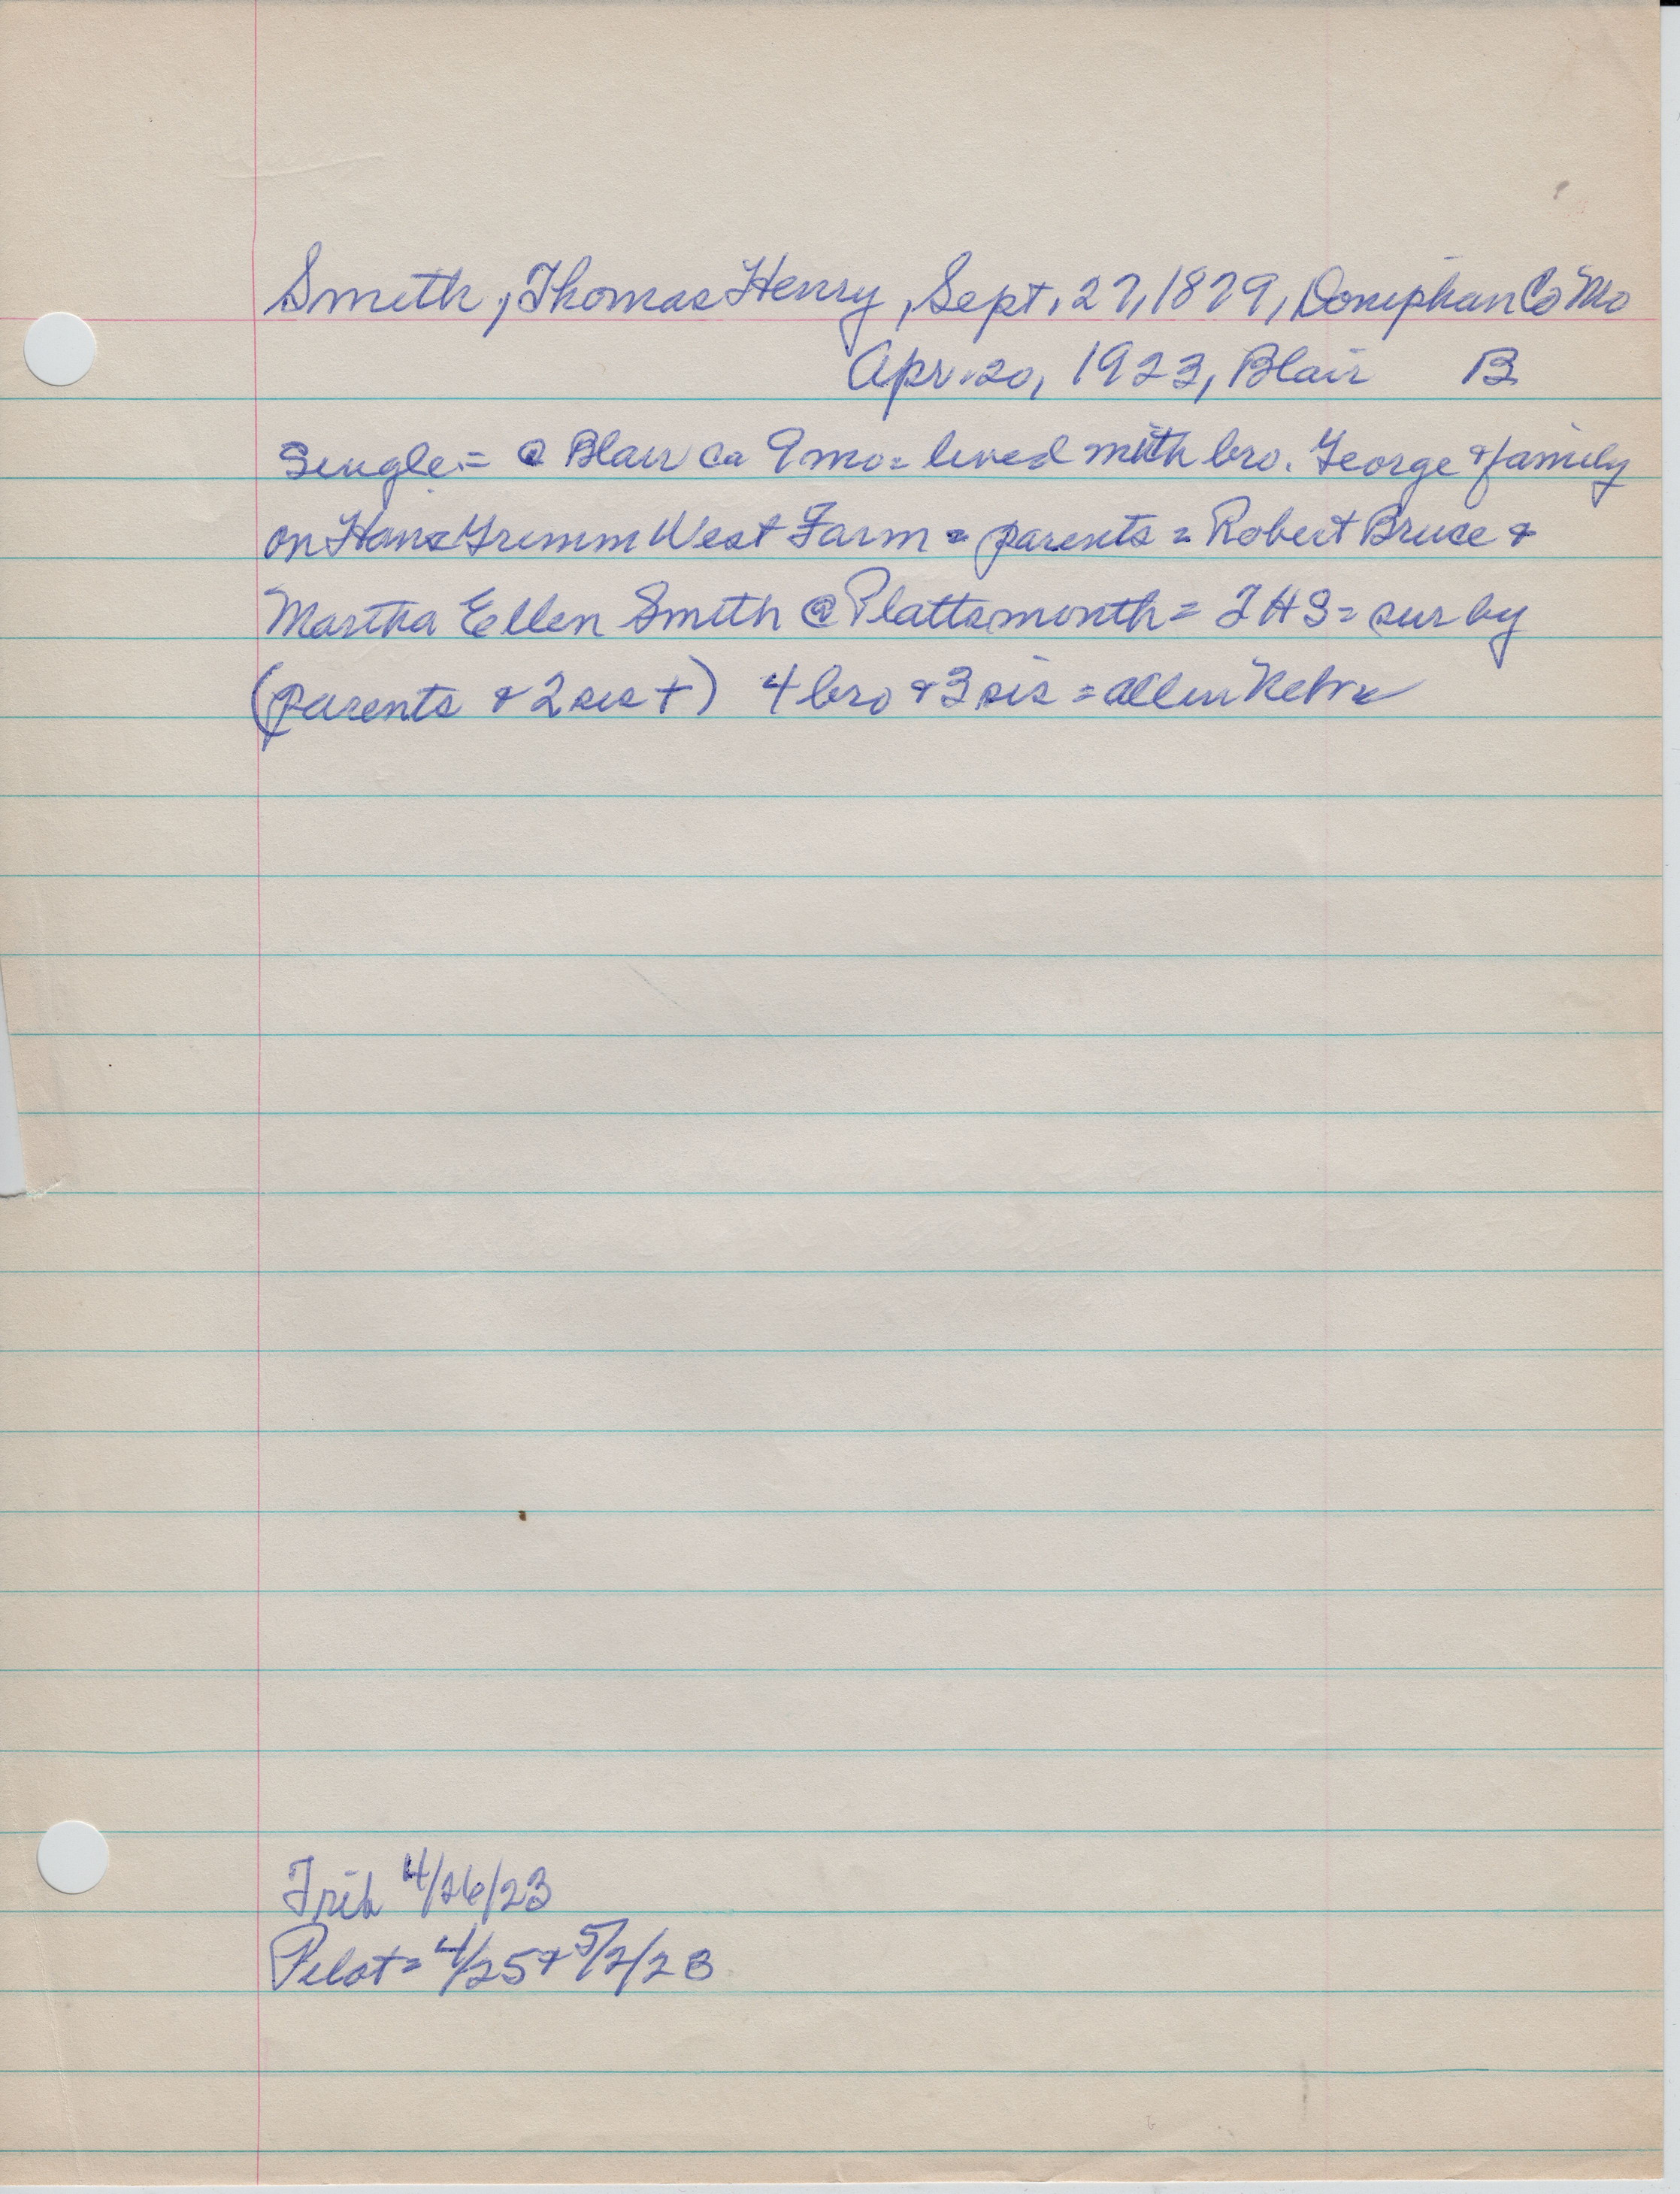 Smith, Thomas Henry, Sept. 27, 1879, Doniphan Co Mo
Apr. 20, 1923, Blair B
Single = @ Blair ca 9 mo = lived with bro. George & family
on Hans Grimm West Farm = parents = Robert Bruce &
Martha Ellen Smith @ Plattsmonth = THS = sur by
(parents & 2 sis +) 4 bro & 3 sis = all in Nebr
Trib 4/26/23
Pilot = 4/25 + 5/2/23